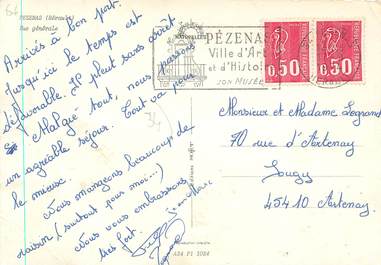 PEZENAS (Hérault)
Vue générale
Arrivés à bon port.
Jusqu'ici le temps est
défavorable. Il pleut sans arrêt.
Malgré tout, nous passons
un agréable séjour. Tout va pour
le mieux.
Nous mangeons beaucoup de
raisin (surtout pour moi...)
Nous vous embrassons
très fort.
34
PÉZENAS
Ville d'Art
et d'Histoire
SON MUSÉE
0,50
0,50
Monsieur et Madame Legrand
70 rue d'Artenay
Sougy
45410 Artenay
A34 F1 2084